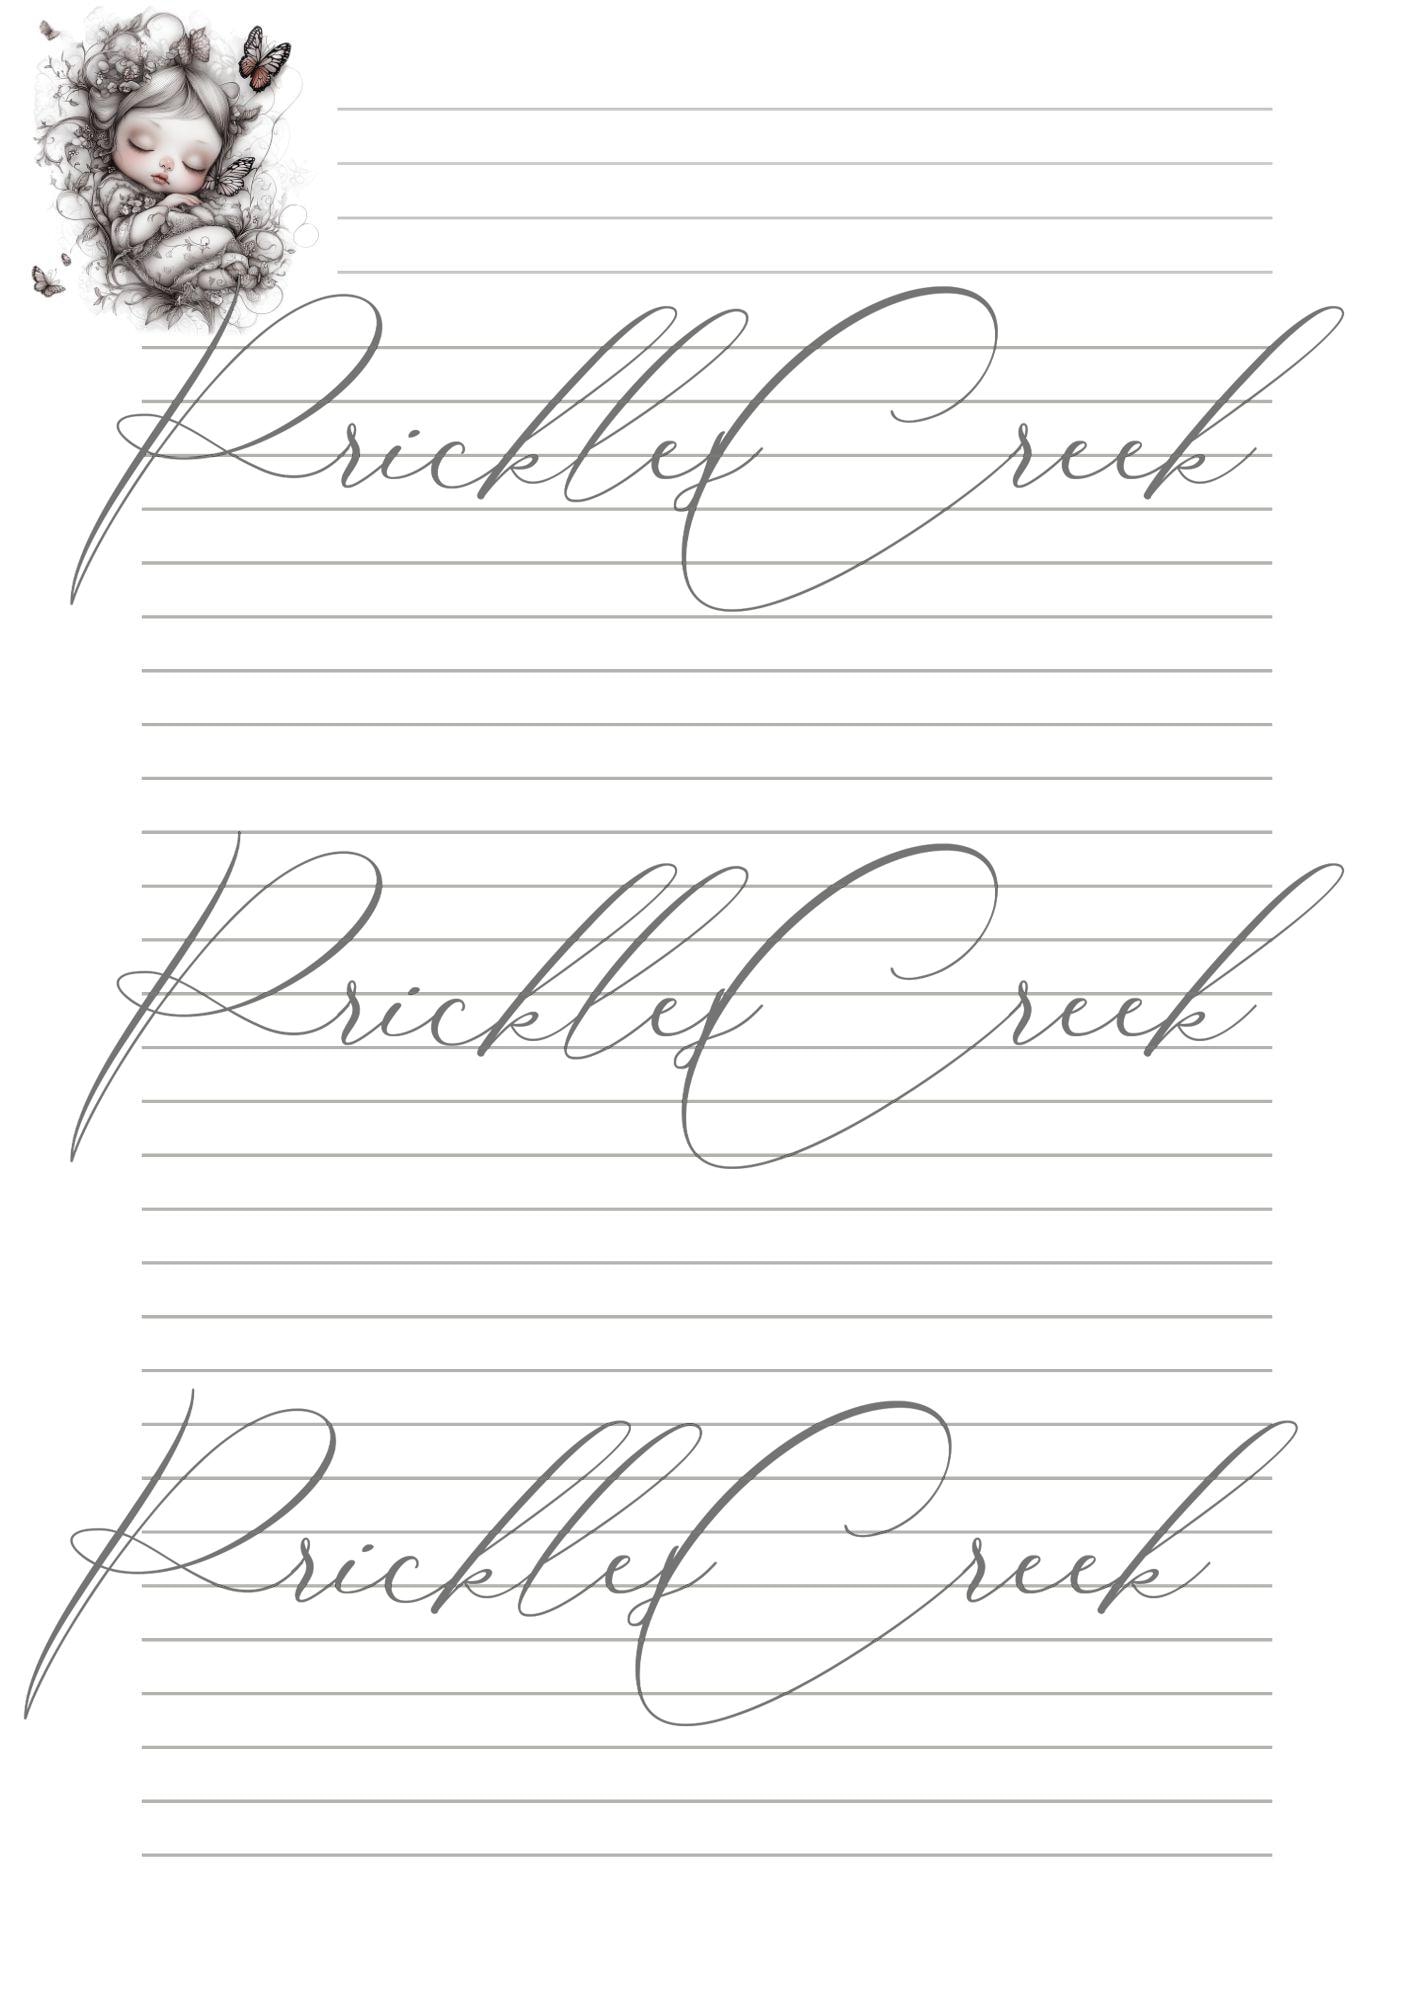 Prickles Creek
Prickles Creek
Prickles Creek